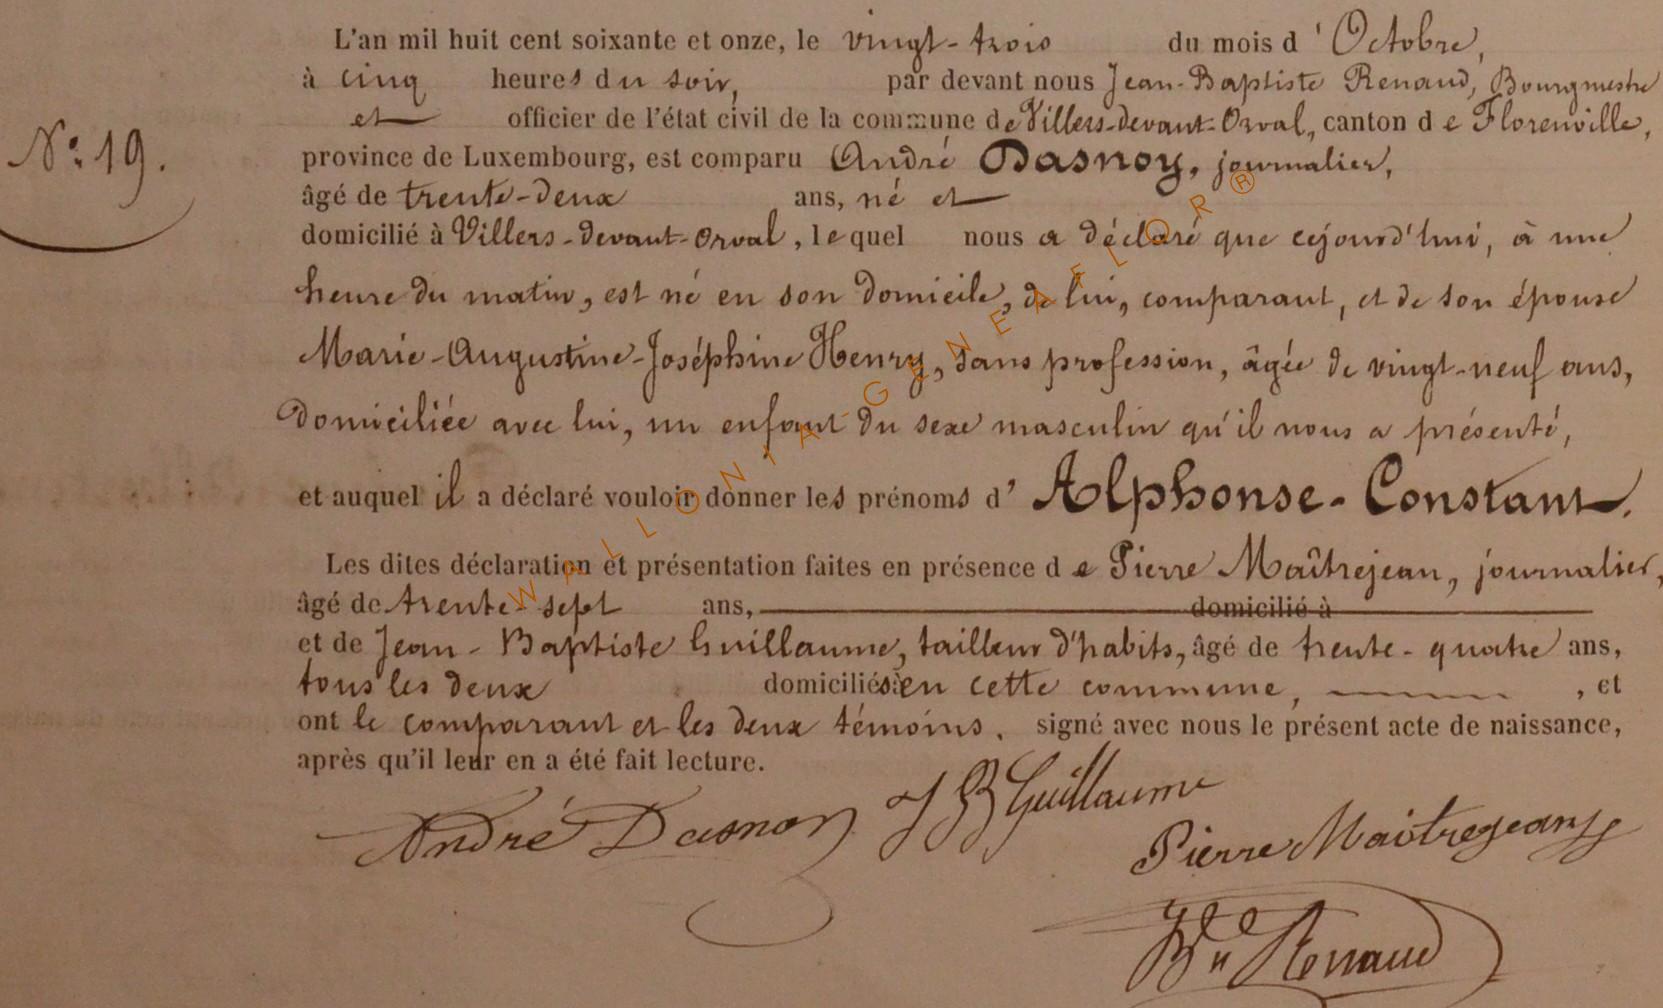 L'an mil huit cent soixante et onze, le vingt-trois du mois d'Octobre,
à cinq heures du soir, par devant nous Jean-Baptiste Renaud, Bourgmestre
et officier de l'état civil de la commune de Villers-devant-Orval, canton de Florenville,
N° 19.
province de Luxembourg, est comparu André Dasnoy, journalier,
âgé de trente-deux ans, né et
domicilié à Villers-devant-Orval, lequel nous a déclaré que cejourd'hui, à une
heure du matin, est né en son domicile, de lui, comparant, et de son épouse
Marie-Augustine-Joséphine Henry, sans profession, âgée de vingt-neuf ans,
domiciliée avec lui, un enfant du sexe masculin qu'il nous a présenté,
et auquel il a déclaré vouloir donner les prénoms d'Alphonse-Constant.
Les dites déclaration et présentation faites en présence de Pierre Maîtrejean, journalier,
âgé de trente-sept ans, domicilié à
et de Jean-Baptiste Guillaume, tailleur d'habits, âgé de trente-quatre ans,
tous les deux domiciliés en cette commune, , et
ont le comparant et les deux témoins, signé avec nous le présent acte de naissance,
après qu'il leur en a été fait lecture.
André Dasnoy JB Guillaume
Pierre Maitrejean
JBte Renaud
WALLONIA-GENEAFLOR®